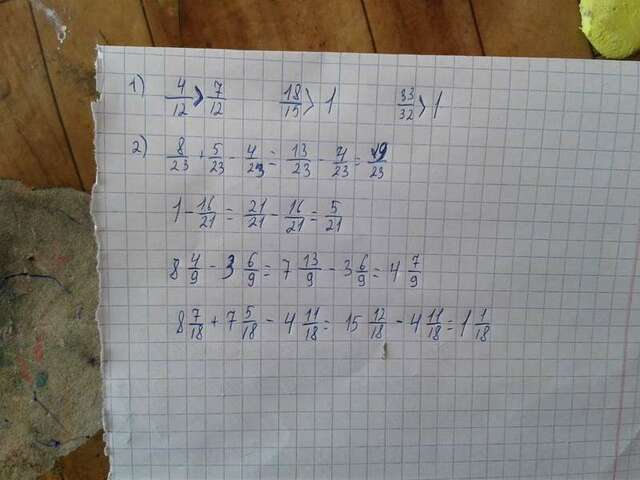 1) 4/12 > 7/12 18/15 > 1 33/32 > 1
2) 8/23 + 5/23 - 4/23 = 13/23 - 4/23 = 9/23
1 - 16/21 = 21/21 - 16/21 = 5/21
8 4/9 - 3 6/9 = 7 13/9 - 3 6/9 = 4 7/9
8 7/18 + 7 5/18 - 4 11/18 = 15 12/18 - 4 11/18 = 1 1/18